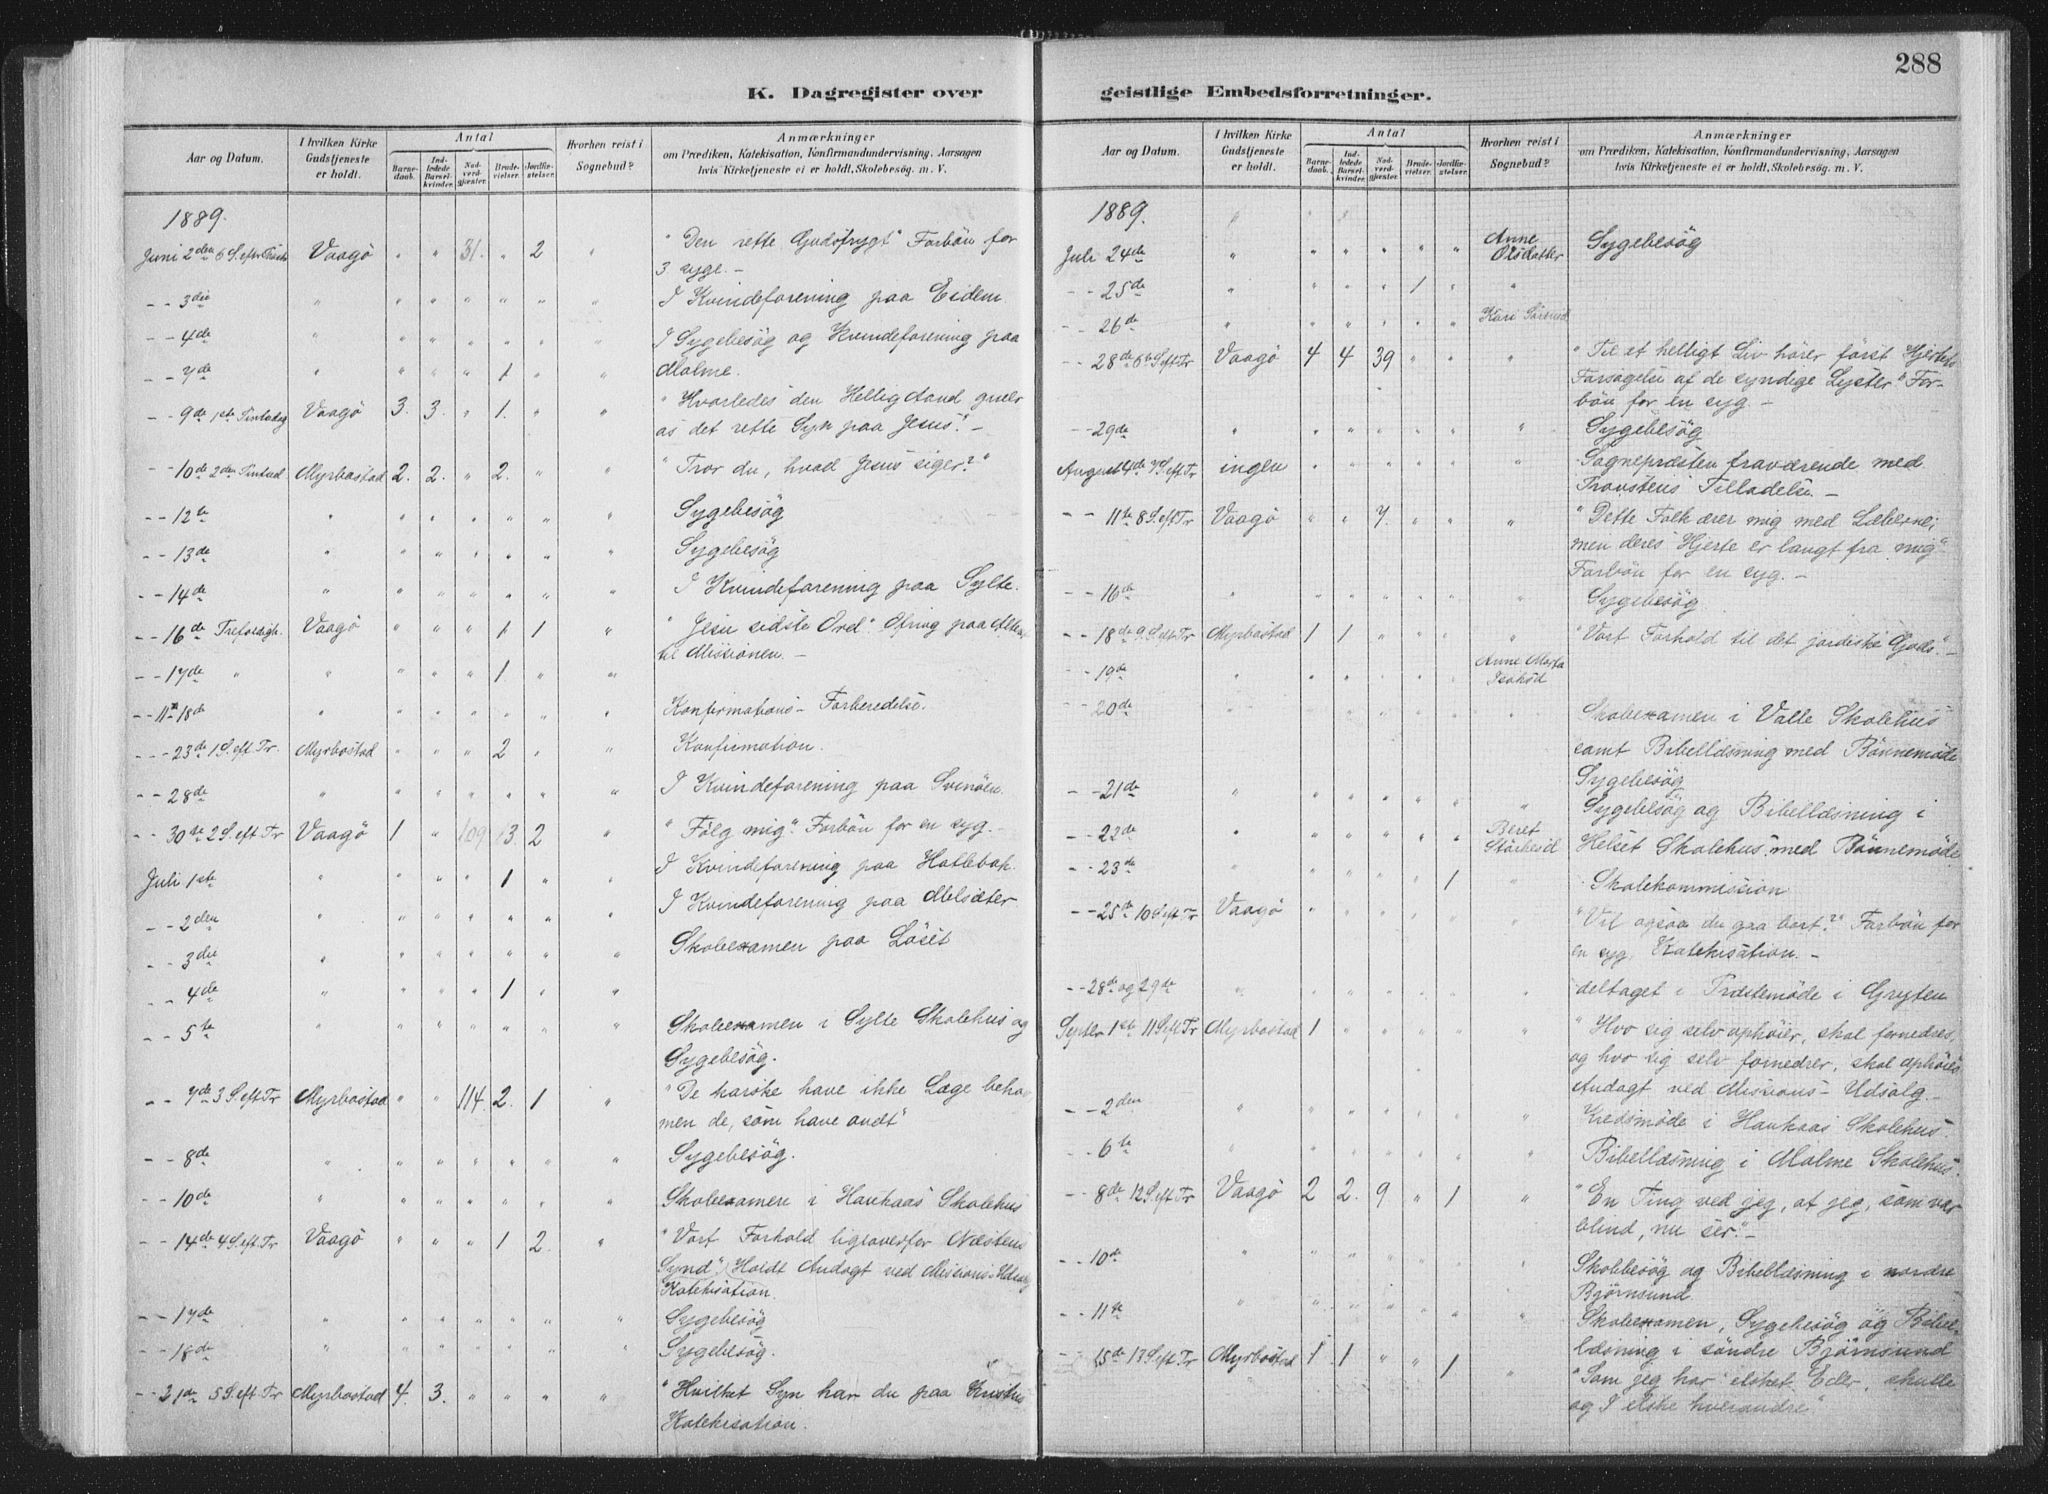 288
K. Dagregister over geistlige Embedsforretninger.
Aar og Datum.
I hvilken Kirke Gudstjeneste er holdt.
Antal
Barnedaab.
Indledede Barselkvinder.
Nadverdgjester.
Brudevielser.
Jordfæstelser.
Hvorhen reist i Sognebud?
Anmærkninger
om Prædiken, Katekisation, Konfirmandundervisning, Aarsagen
hvis Kirketjeneste ei er holdt, Skolebesøg. m. V.
1889.
Juni 2den 6 S. efter Paaske Vaagö " " 31. " 2 " "Den rette Gudsfrygt" Forbön for
3 syge. -
- - 3die " " " " " " " I Kvindeforening paa Eidem
- - 4de " " " " " " " I Sygebesög og Kvindeforening paa
Malme.
- - 7de " " " " 1 " "
- - 9de 1ste Pintsedag Vaagö 3. 3. " 1. " " "Hvorledes den Hellig Aand giver
os det rette Syn paa Jesus". -
- - 10de 2den Pintsed. Myrbostad 2. 2. " 2. " " "Tror du, hvad Jesus siger?"
- - 12te " " " " " " " Sygebesög
- - 13de " " " " " " " Sygebesög
- - 14de " " " " " " " I Kvindeforening paa Sylte.
- - 16de Trefoldigh. Vaagö " " " 1 1 " "Jesu sidste Ord". Ofring paa Alteret
til Missionen. -
- - 17de " " " " " 1. " "
- - 11te 18de " " " " " " " Konfirmations-Forberedelse.
- - 23de 1 S. eft. Tr. Myrbostad " " " 2 " " Konfirmation.
- - 28de " " " " " " " I Kvindeforening paa Svinöen.
- - 30te 2 S. eft Tr Vaagö 1 " 109 13. 2 " "Fölg mig". Forbön for en syg. -
Juli 1ste " " " " 1 " " I Kvindeforening paa Hollebak.
- - 2den " " " " " " " I Kvindeforening paa Melsæter
- - 3die " " " " " " " Skolexamen paa Löset
- - 4de " " " " 1 " "
- - 5te " " " " " " " Skolexamen i Sylte Skolehus og
Sygebesög.
- - 7de 3 S. eft Tr Myrbostad " " 114. 2. 1 " "De karske have ikke Læge behov
men de, som have ondt"
- - 8de " " " " " " " Sygebesög.
- - 10de " " " " " " " Skolexamen i Haukaas Skolehus
- - 14de 4 S. eft Tr Vaagö " " " 1 2. " "Vort Forhold ligeoverfor Næstens
Synd". Holdt Andagt ved Missions-Udsalg
Katekisation.
- - 17de " " " " " " " Sygebesög
- - 18de " " " " " " " Sygebesög.
- - 21de 5 S. eft Tr Myrbostad 4. 3. " " " " "Hvilket Syn har du paa Kristus
Katekisation.
Aar og Datum.
I hvilken Kirke Gudstjeneste er holdt.
Antal
Barnedaab.
Indledede Barselkvinder.
Nadverdgjester.
Brudevielser.
Jordfæstelser.
Hvorhen reist i Sognebud?
Anmærkninger
om Prædiken, Katekisation, Konfirmandundervisning, Aarsagen
hvis Kirketjeneste ei er holdt, Skolebesög. m. V.
1889.
Juli 24de " " " " " " Anne Olsdatter Sygebesög
- - 25de " " " " 1 " "
- - 26de " " " " " " Kari
- - 28de 6te S. eft Tr Vaagö 4 4 39 " " " "Til et helligt Liv hörer först Hjertets
Forsagelse af de syndige Lyster". For-
bön for en syg. -
- - 29de " " " " " " " Sygebesög
August 4de 7 S. eft Tr ingen " " " " " " Sognepræsten fraværende med
Provstens Tilladelse. -
- - 11te 8 S. eft Tr Vaagö " " 7. " " " "Dette Folk ærer mig med Læberne;
men deres Hjerte er langt fra mig"
Forbön for en syg. -
- - 16de " " " " " " " Sygebesög
- - 18de 9. S. eft Tr Myrbostad 1 1 " " " " "Vort Forhold til det jordiske Gods". -
- - 19de " " " " " " Anne Marta
- - 20de " " " " " " " Skolexamen i Valle Skolehus
samt Bibellæsning med Bönnemöde
Sygebesög
- - 21de " " " " " " " Sygebesög og Bibellæsning i
- - 22de " " " " " " Beret Helset Skolehus med Bönnemöde
- - 23de " " " " " 1 " Skolekommission
- - 25te 10 S. eft Tr Vaagö " " " " " " "Vil ogsaa du gaa bort?" Forbön for
en syg. Katekisation. -
- - 28de og 29de " " " " " " " deltaget i Præstemöde i Gryten
Septer 1ste 11 S. eft Tr Myrbostad 1 " " " " " "Hvo sig selv ophöier, skal fornedres,
og hvo sig selv fornedrer, skal ophöies
Andagt ved Missions-Udsalg. -
- - 2den " " " " " " " Kredsmöde i Haukaas Skolehus.
- - 6te " " " " " " " Bibellæsning i Malme Skolehus.
- - 8de 12 S. eft Tr Vaagö 2 2. 9 " 1 " "En Ting ved jeg, at jeg, som var
blind, nu ser". -
- - 10de " " " " " " " Skolebesög og Bibellæsning i nordre
Bjørnsund.
- - 11te " " " " " " " Skolexamen, Sygebesög og Bibel-
læsning i söndre Bjørnsund
- - 15de 13 S. eft Tr Myrbostad 1 1 " " 1 " "Som jeg har elsket Eder, skulle
og I elske hverandre"